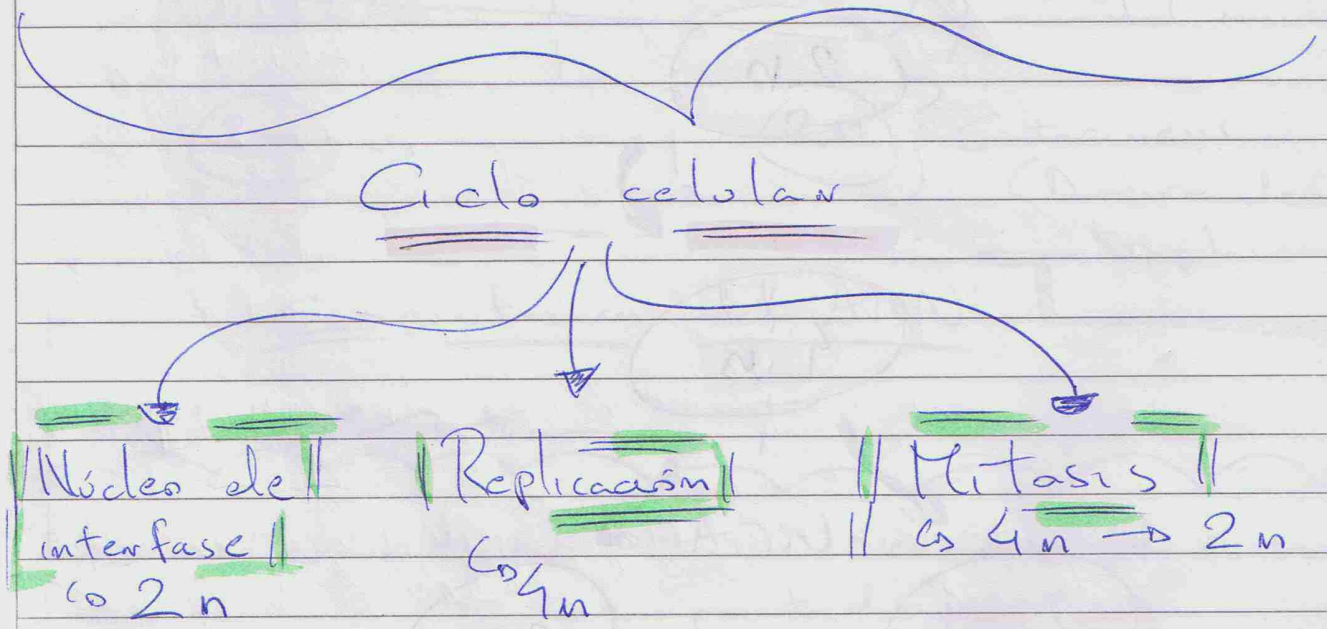 Ciclo celular
Núcleo de
interfase
↳ 2n
Replicación
↳ 4n
Mitosis
↳ 4n → 2n